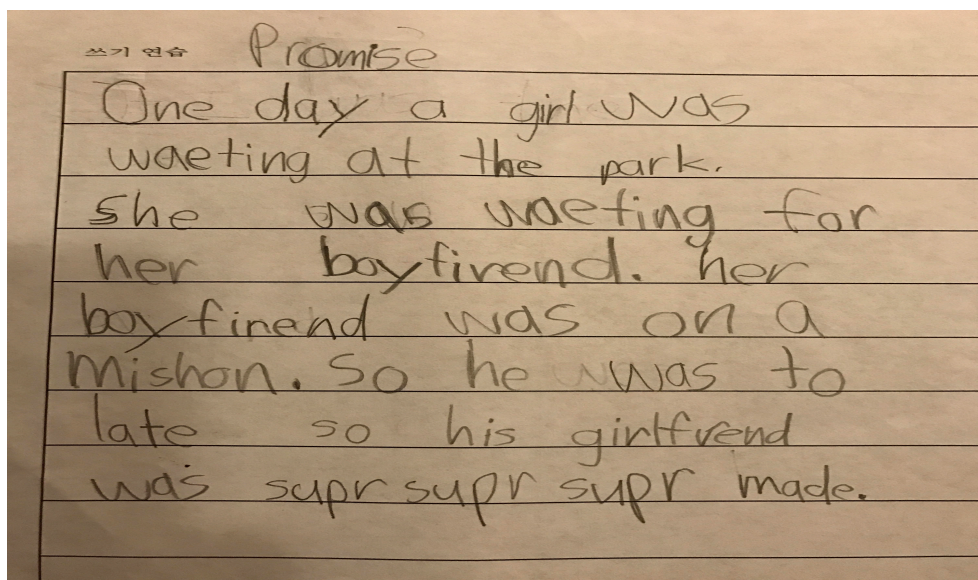 쓰기 연습 Promise
One day a girl was
waeting at the park.
She was waeting for
her boyfirend. her
boyfinend was on a
mishon. So he was to
late so his girlfvend
was supr supr supr made.